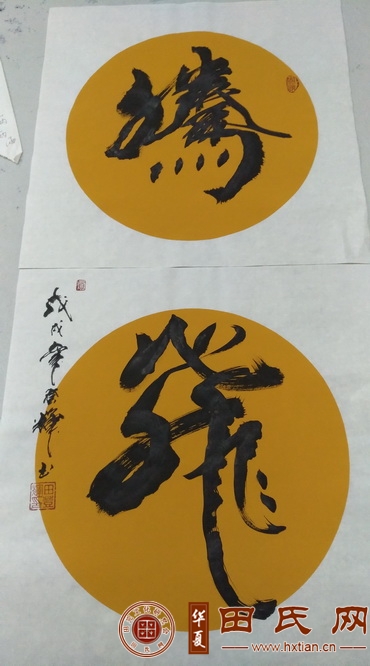 騰
飛
戊戌年
书
华夏
田氏网
www.hxtian.cn